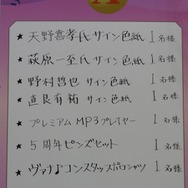 A
★ 天野喜孝氏サイン色紙 1名様
★ 萩原一至氏サイン色紙 1名様
★ 野村哲也 サイン色紙 1名様
★ 直良有祐 サイン色紙 1名様
★ プレミアムMP3プレイヤー 1名様
★ 5周年ピンズセット 1名様
★ ヴァナ♪コンスタッフ 1名様